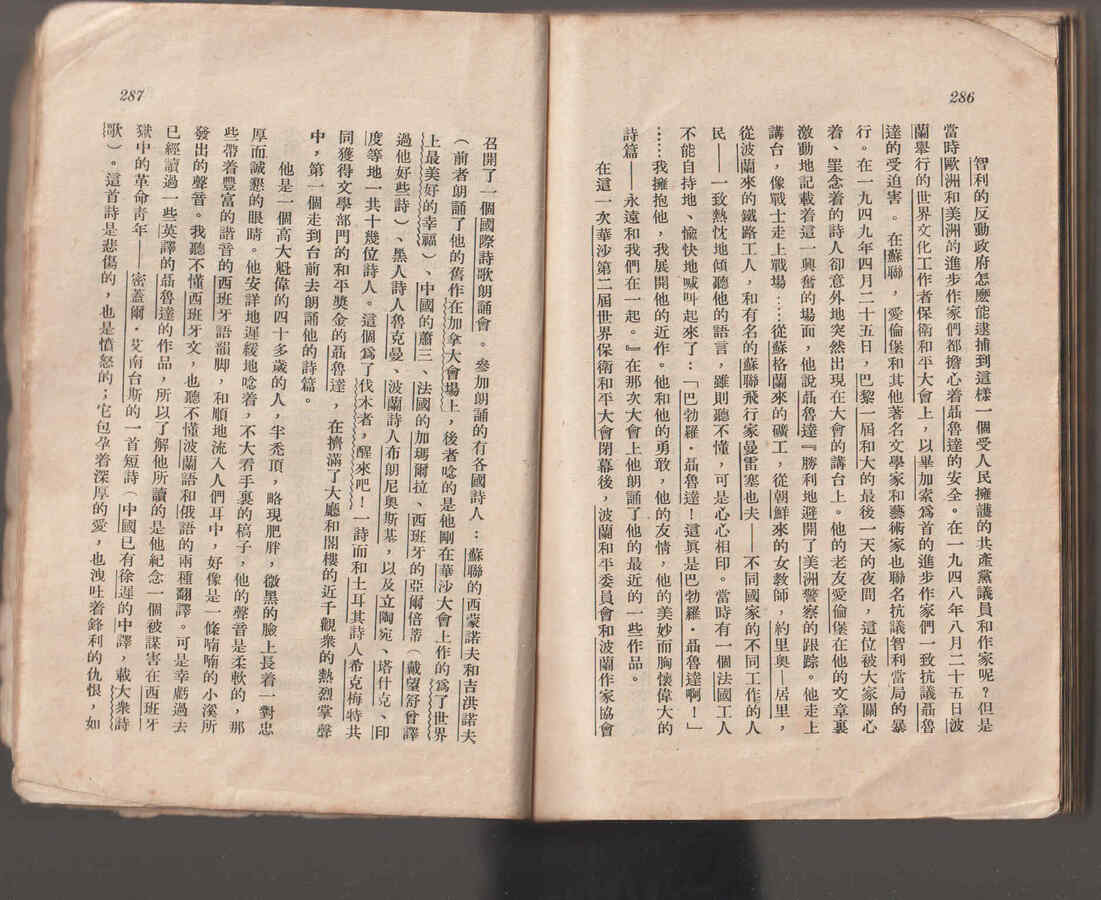 286
智利的反動政府怎麽能逮捕到這樣一個受人民擁護的共產黨議員和作家呢？但是
當時歐洲和美洲的進步作家們都擔心着聶魯達的安全。在一九四八年八月二十五日波
蘭舉行的世界文化工作者保衛和平大會上，以畢加索爲首的進步作家們一致抗議聶魯
達的受迫害。在蘇聯，愛倫堡和其他著名文學家和藝術家也聯名抗議智利當局的暴
行。在一九四九年四月二十五日，巴黎一屆和大的最後一天的夜間，這位被大家關心
着、罣念着的詩人卻意外地突然出現在大會的講台上。他的老友愛倫堡在他的文章裏
激動地記載着這一興奮的場面，他說聶魯達『勝利地避開了美洲警察的跟踪。他走上
講台，像戰士走上戰場……從蘇格蘭來的礦工，從朝鮮來的女教師，約里奧—居里，
從波蘭來的鐵路工人，和有名的蘇聯飛行家曼雷塞也夫——不同國家的不同工作的人
民——一致熱忱地傾聽他的語言，雖則聽不懂，可是心心相印。當時有一個法國工人
不能自持地、愉快地喊叫起來了：「巴勃羅·聶魯達！這眞是巴勃羅·聶魯達啊！」
……我擁抱他，我展開他的近作。他和他的勇敢，他的友情，他的美妙而胸懷偉大的
詩篇——永遠和我們在一起。』在那次大會上他朗誦了他的最近的一些作品。
在這一次華沙第二屆世界保衛和平大會閉幕後，波蘭和平委員會和波蘭作家協會
287
召開了一個國際詩歌朗誦會。參加朗誦的有各國詩人：蘇聯的西蒙諾夫和吉洪諾夫
（前者朗誦了他的舊作在加拿大會場上，後者唸的是他剛在華沙大會上作的爲了世界
上最美好的幸福）、中國的蕭三、法國的加瑪爾拉、西班牙的亞爾倍蒂（戴望舒曾譯
過他好些詩）、黑人詩人魯克曼、波蘭詩人布朗尼奧斯基，以及立陶宛、塔什克、印
度等地一共十幾位詩人。這個爲了伐木者，醒來吧！一詩而和土耳其詩人希克梅特共
同獲得文學部門的和平獎金的聶魯達，在擠滿了大廳和閣樓的近千觀衆的熱烈掌聲
中，第一個走到台前去朗誦他的詩篇。
他是一個高大魁偉的四十多歲的人，半禿頂，略現肥胖，微黑的臉上長着一對忠
厚而誠懇的眼睛。他安詳地遲緩地唸着，不大看手裏的稿子，他的聲音是柔軟的，那
些帶着豐富的諧音的西班牙語韻脚，和順地流入人們耳中，好像是一條喃喃的小溪所
發出的聲音。我聽不懂西班牙文，也聽不懂波蘭語和俄語的兩種翻譯。可是幸虧過去
已經讀過一些英譯的聶魯達的作品，所以了解他所讀的是他紀念一個被謀害在西班牙
獄中的革命青年——密蓋爾·艾南台斯的一首短詩（中國已有徐遲的中譯，載大衆詩
歌）。這首詩是悲傷的，也是憤怒的；它包孕着深厚的愛，也洩吐着鋒利的仇恨，如